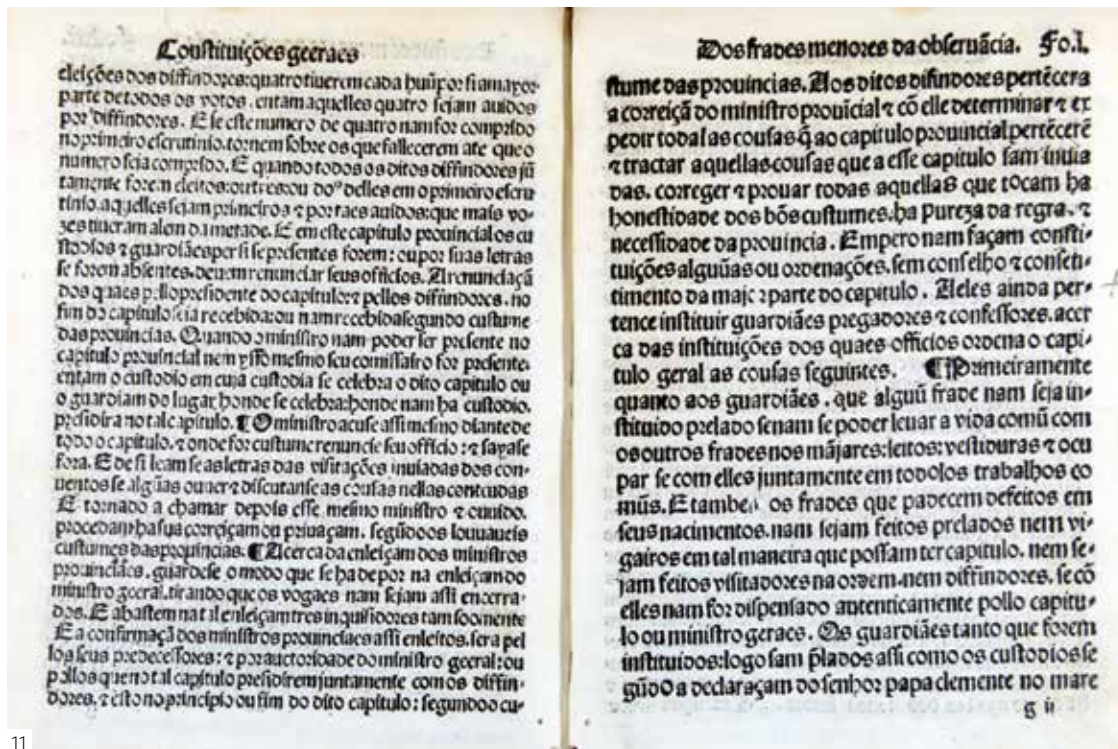 Constituições geeraes
eleições dos diffindores: quatro tiuerem cada huũ por si a mayor
parte de todos os votos, entam aquelles quatro sejam auidos
por diffindores. E se este numero de quatro nam for comprido
no primeiro escrutinio, tornem sobre os que fallecerem ate que o
numero seia comprido. E quando todos os ditos diffindores jũ
tamente forem eleitos: ou tres: ou doᵒ delles em o primeiro escru
tinio. aquelles sejam primeiros ⁊ por taes auidos: que mais vo-
zes tiueram alem da metade. E em este capitulo prouincial os cu
stodios ⁊ guardiães per si se presentes forem: ou por suas letras
se forem absentes. deuem renunciar seus officios. A renunciaçã
dos quaes pello presidente do capitulo: ⁊ pellos diffindores. no
fim do capitulo seia recebida: ou nam recebida segundo custume
das prouincias. Quando o ministro nam poder ser presente no
capitulo prouincial nem ysso mesmo seu comissairo for presente.
entam o custodio em cuja custodia se celebra o dito capitulo ou
o guardiam do lugar honde se celebra: honde nam ha custodio.
presidira no tal capitulo. ¶ O ministro acuse assi mesmo diante de
todo o capitulo. ⁊ onde for custume renuncie seu officio: ⁊ sayase
fora. E de si leam se as letras das visitações inuiadas dos con-
uentos se algũas ouuer ⁊ discutanse as cousas nellas conteudas
E tornado a chamar depois esse mesmo ministro ⁊ ouuido.
procedam ha sua correiçam ou priuaçam. segũdo os louuaueis
custumes das prouincias. ¶ Acerca da enleiçam dos ministros
prouinciães. guardese o modo que se ha de por na enleiçam do
ministro geeral. tirando que os vogaes nam sejam assi encerra-
dos. E abastem na tal enleiçam tres inquisidores tam soomente
E a confirmaçã dos ministros prouinciaes assi enleitos. sera pel
los seus predecessores: ⁊ por auctoridade do ministro geeral: ou
pellos que no tal capitulo presidirem juntamente com os diffin-
dores. ⁊ esto no principio ou fim do dito capitulo: segundo o cu-
Dos frades menores da obseruãcia. Fo.l.
stume das prouincias. Aos ditos difindores pertẽcera
a correiçã do ministro prouĩcial ⁊ cõ elle determinar ⁊ ex
pedir todas as cousas q̃ ao capitulo prouincial pertẽcerẽ
⁊ tractar aquellas cousas que a esse capitulo sam inuia
das. correger ⁊ prouar todas aquellas que tocam ha
honestidade dos bõs custumes. ha pureza da regra. ⁊
necessidade da prouincia. Empero nam façam consti-
tuições alguũas ou ordenações. sem conselho ⁊ consen-
timento da major parte do capitulo. A eles ainda per-
tence instituir guardiães pregadores ⁊ confessores. acer
ca das instituições dos quaes officios ordena o capi-
tulo geral as cousas seguintes. ¶ Primeiramente
quanto aos guardiães. que alguũ frade nam seja in-
stituido prelado senam se poder leuar a vida comũ com
os outros frades nos mãjares: leitos: vestiduras ⁊ ocu
par se com elles juntamente em todolos trabalhos co
mũs. E tambe os frades que padecem defeitos em
seus nacimentos. nam sejam feitos prelados nem vi-
gairos em tal maneira que possam ter capitulo. nem se-
jam feitos visitadores na ordem. nem diffindores. se cõ
elles nam for dispensado autenticamente pollo capitu-
lo ou ministro geraes. Os guardiães tanto que forem
instituidos: logo sam p̃lados assi como os custodios se
gũdo a declaraçam do senhor papa clemente no mare
g ii
11